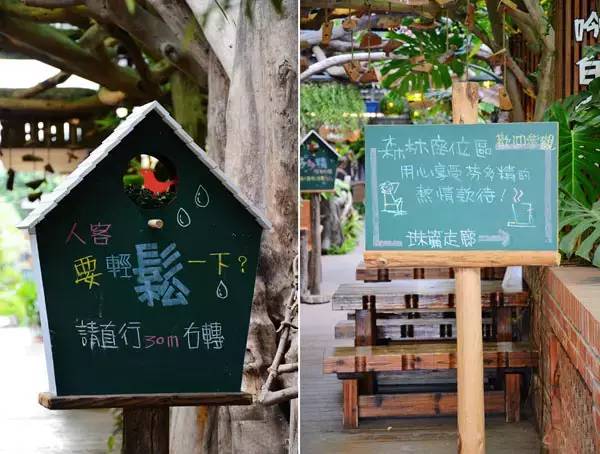 人客
要輕鬆一下?
請直行30m右轉
吟
森林座位區
用心享受芬多精的
熱情款待!
珠寶走廊